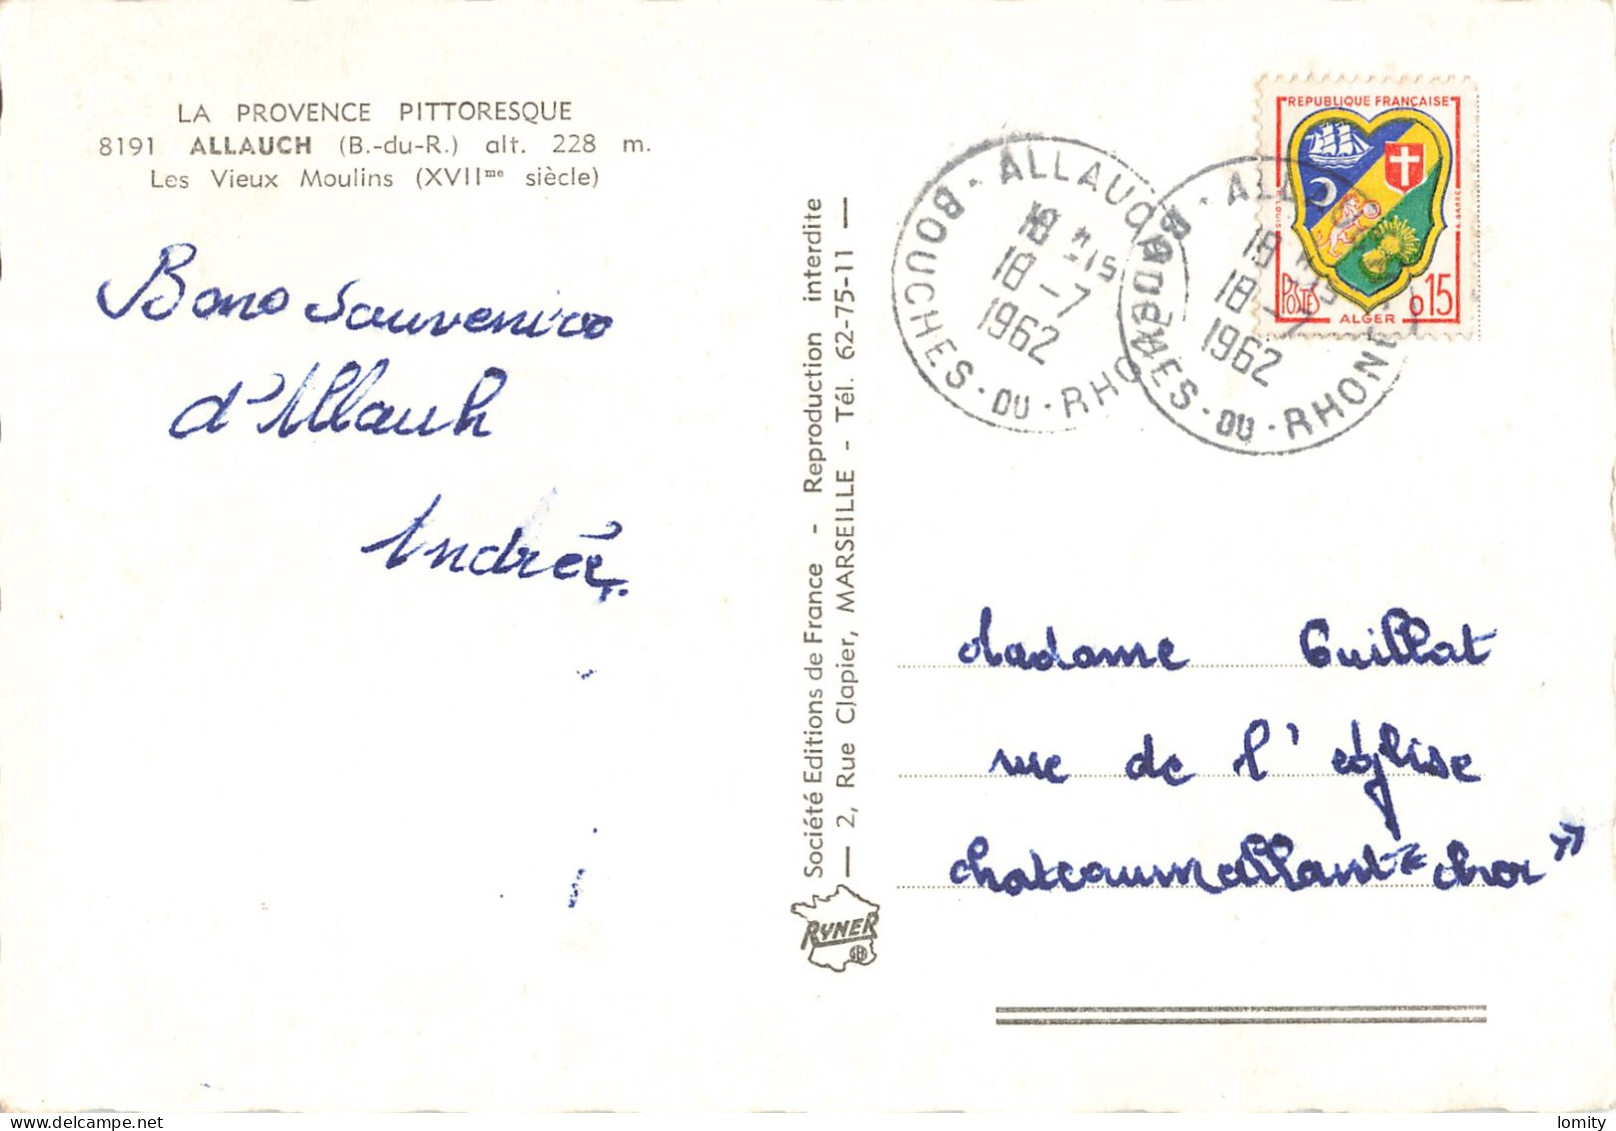 LA PROVENCE PITTORESQUE
8191 ALLAUCH (B.-du-R.) alt. 228 m.
Les Vieux Moulins (XVIIme siècle)
Bons Souvenirs
d'Allauh
Andrée
Société Editions de France - Reproduction interdite
— 2, Rue Clapier, MARSEILLE - Tél. 62-75-11 —
RYNER
ALLAUCH
18 H 15
18 - 7
1962
BOUCHES-DU-RHONE
ALLAUCH
18 H 15
18 - 7
1962
BOUCHES-DU-RHONE
REPUBLIQUE FRANÇAISE
POSTES
ALGER
0,15
Madame Guillat
rue de l'église
Chateaumeillant "Cher"
lomity